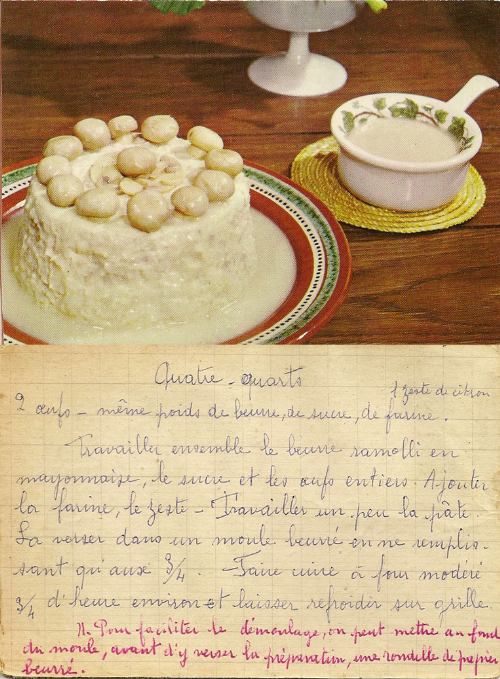 Quatre-quarts
1 zeste de citron
2 œufs - même poids de beurre, de sucre, de farine.
Travailler ensemble le beurre ramolli en
mayonnaise, le sucre et les œufs entiers. Ajouter
la farine, le zeste - Travailler un peu la pâte.
La verser dans un moule beurré en ne remplis-
sant qu'aux 3/4. - Faire cuire à four modéré
3/4 d'heure environ et laisser refroidir sur grille.
N. Pour faciliter le démoulage, on peut mettre au fond
du moule, avant d'y verser la préparation, une rondelle de papier
beurré.